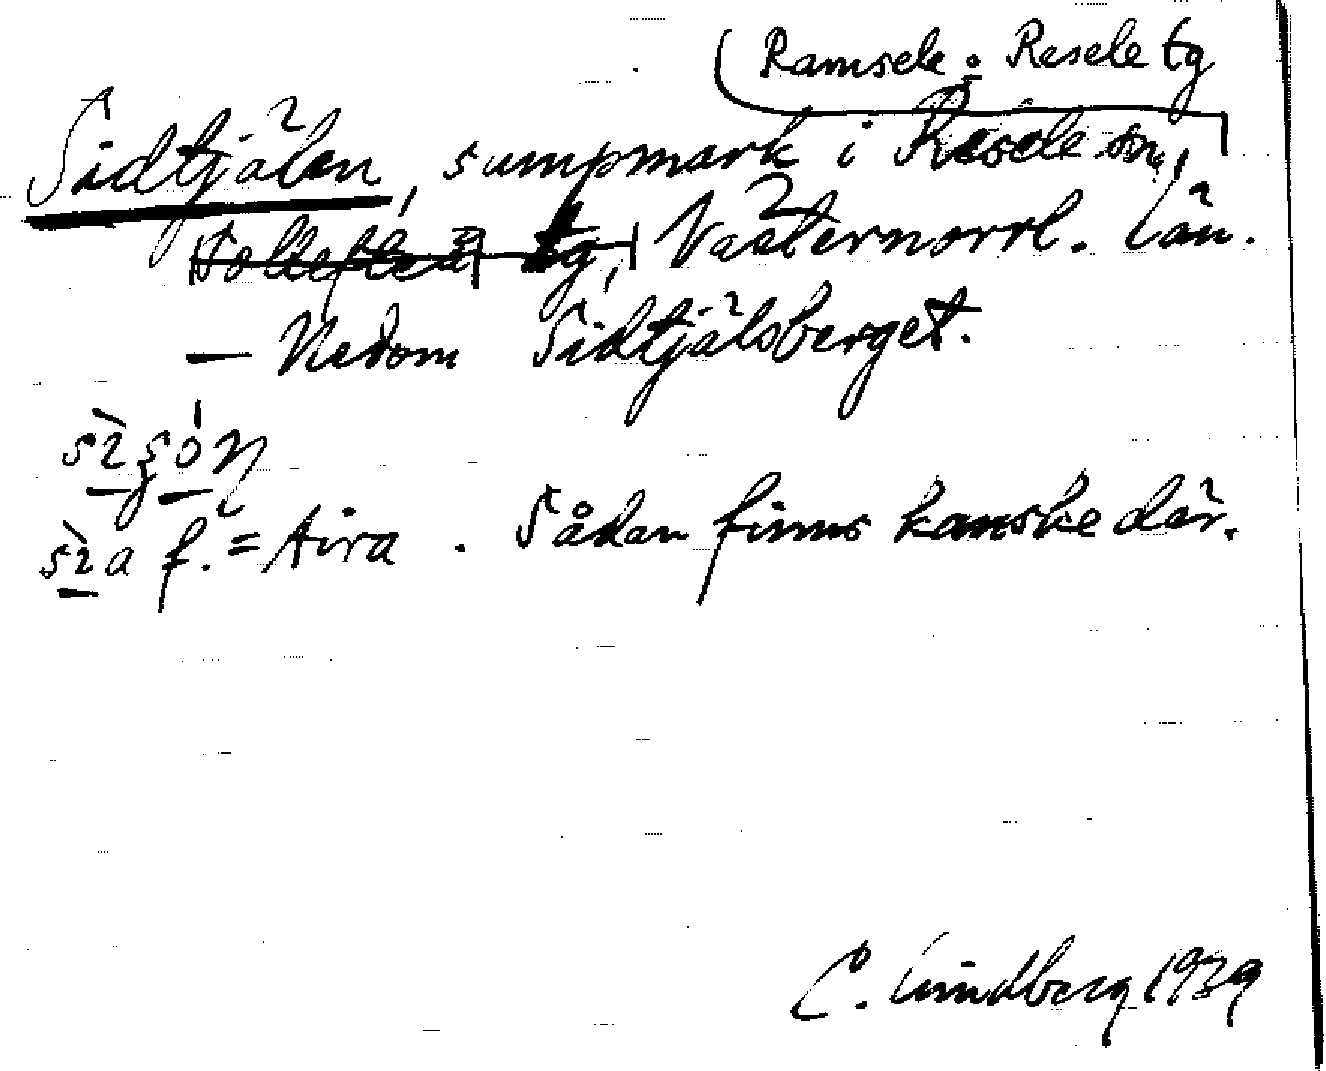 Ramsele o Resele tg
Sidtjälen, sumpmark i Resele sn,
Sollefteå tg, Västernorrl. län.
— Nedom Sidtjälsberget.
f. = Aira. Sådan finns kanske där.
C. Lindberg 1939